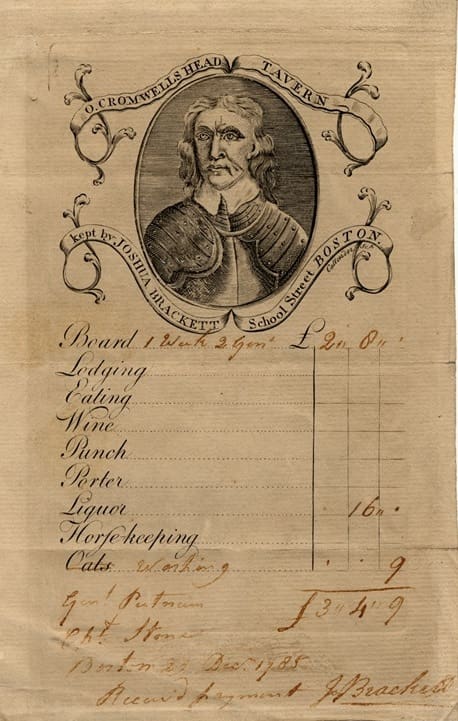 O. CROMWELLS HEAD TAVERN
kept by JOSHUA BRACKETT School Street BOSTON.
Board 1 Week 2 Genᵗ £ 2 " 8 " "
Lodging
Eating
Wine
Punch
Porter
Liquor 16 "
Horse-keeping
Oats Washing 9
Genˡ Putnam £3 " 4 " 9
Stone
Boston 27 Decʳ 1785
Receiv'd payment J. Brackett